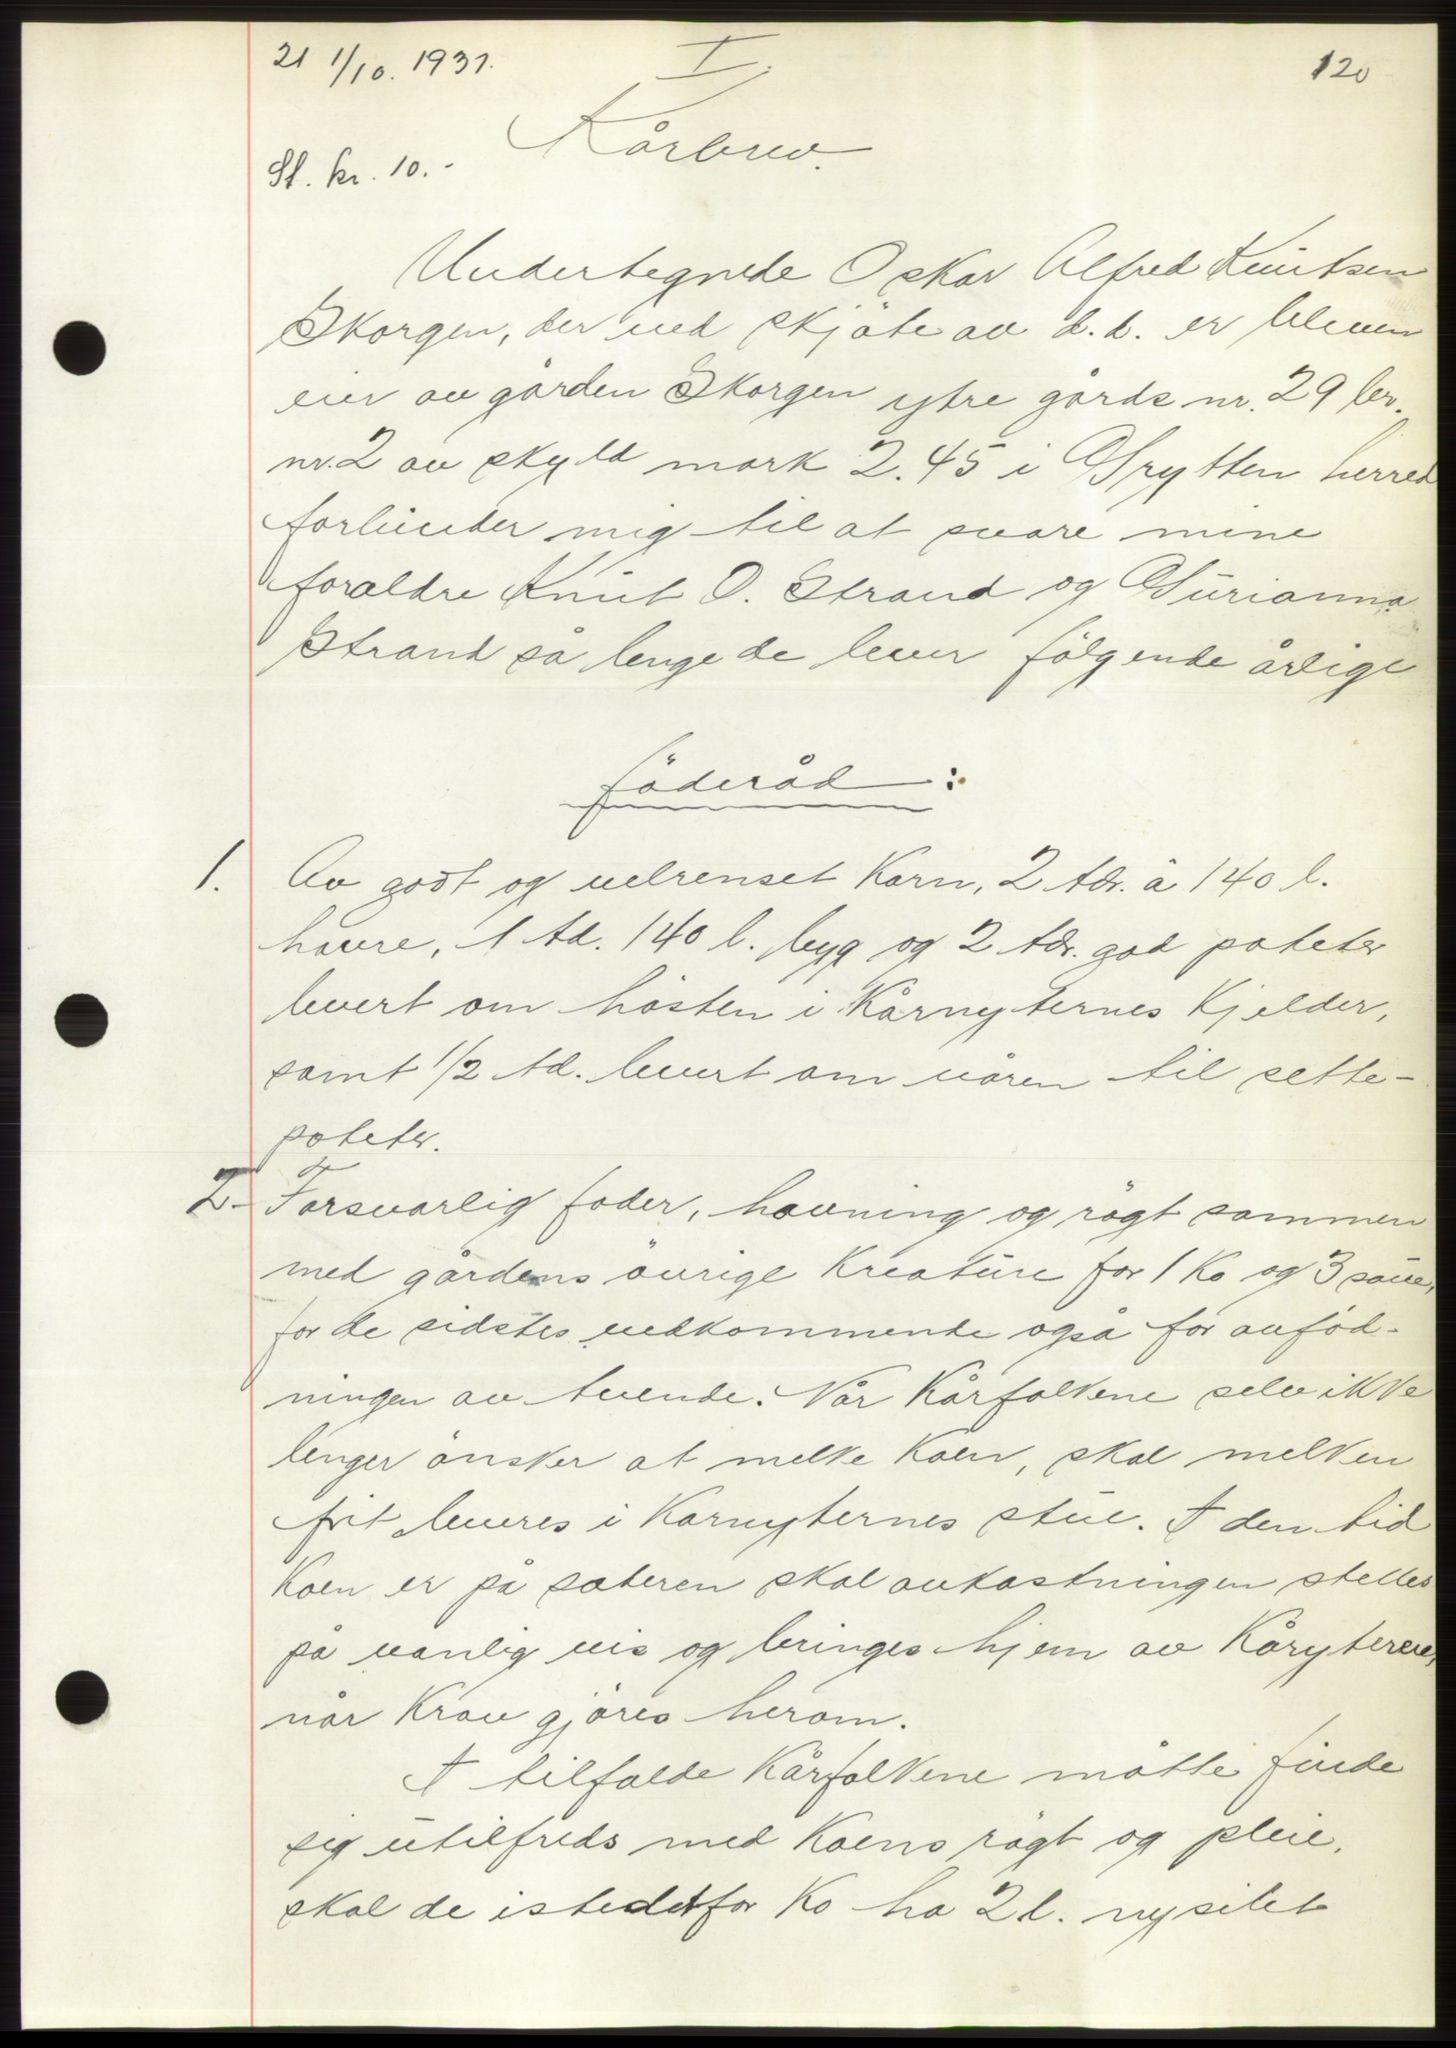 21 1/10. 1931.
I.
120
Kårbrev.
St. kr. 10.-
Undertegnede Oskar Alfred Knutsen
Skorgen, der ved skjöte av d.d. er bleven
eier av gården Skorgen ytre gårds nr. 29 br.
nr. 2 av skyld mark 2.45 i Grytten herred
forbinder mig til at svare mine
foraldre Knut O. Strand og Gurianna
Strand så lenge de lever fölgende årlige
föderåd:
1. Av godt og velrenset Korn, 2 tdr. à 140 l.
havre, 1 td. 140 l. byg og 2 tdr. god poteter
levert om hösten i Kårnyternes Kjelder,
samt 1/2 td. levert om våren til sette-
poteter.
2- Forsvarlig foder, havning og rögt sammen
med gårdens övrige Kreature for 1 Ko og 3 saue,
for de sidstes vedkommende også for avföd-
ningen av tvende. Når Kårfolkene selv ikke
lenger önsker at melke Koen, skal melken
frit leveres i Kårnyternes stue. I den tid
Koen er på sæteren skal avkastningen stelles
på vanlig vis og bringes hjem av Kåryteren,
når Krav gjöres herom.
I tilfælde Kårfolkene måtte finde
sig utilfreds med Koens rögt og pleie,
skal de istedetfor Ko ha 2 l. nysilet